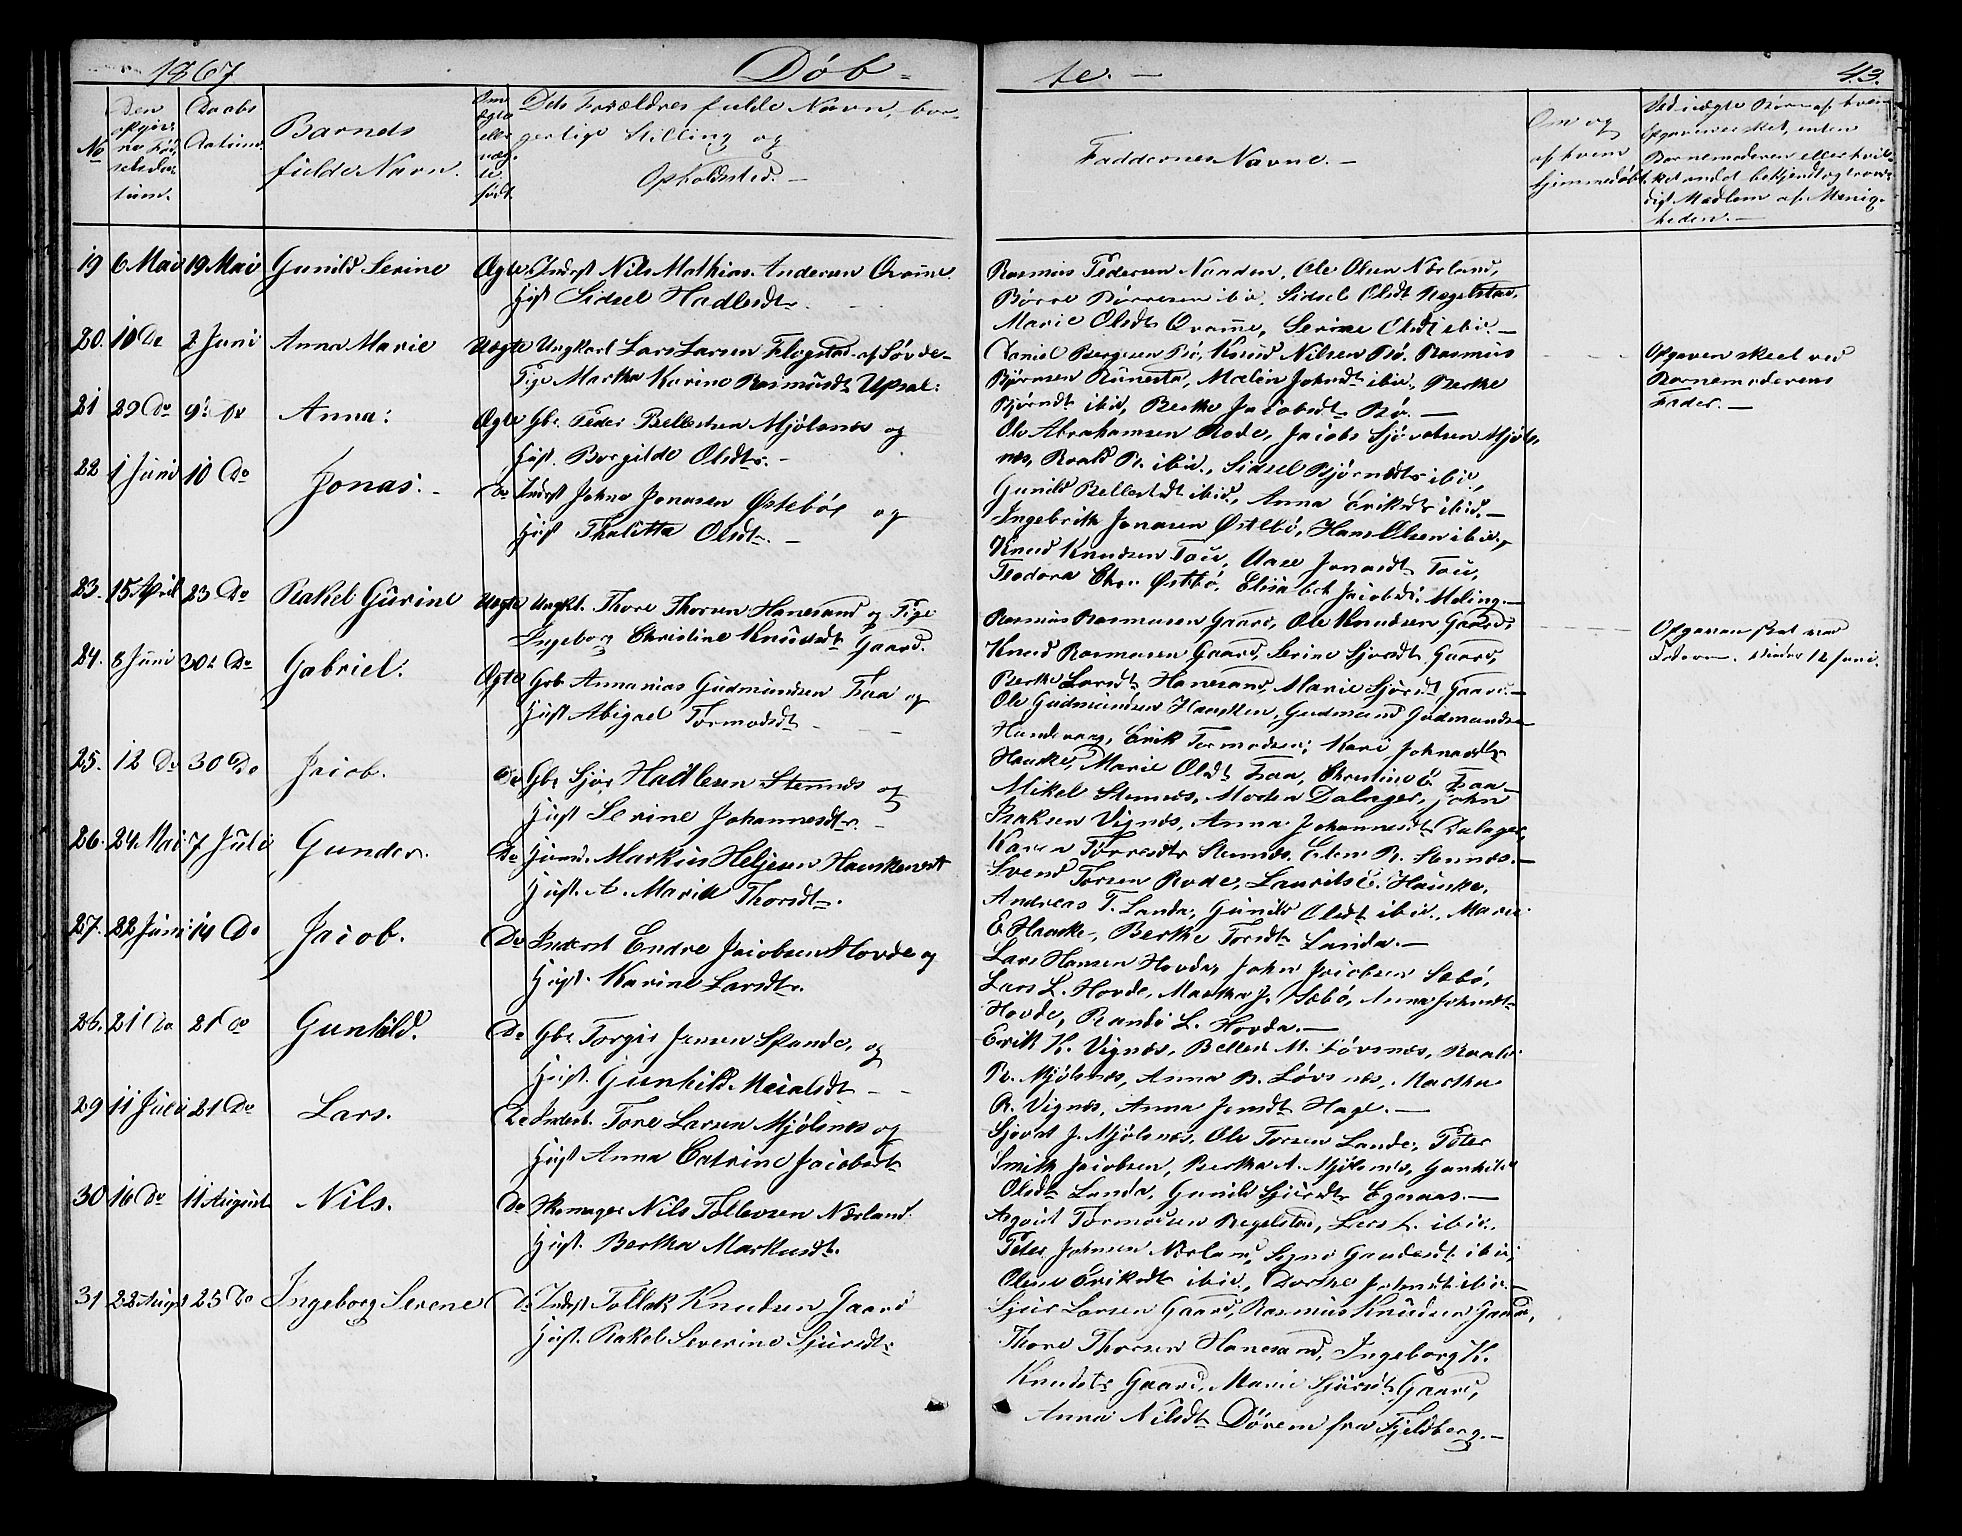 1867
Døb-
te.-
43.
No
Den opgivne Fødselsdatum.
Daabs Datum.
Barnets fulde Navn.
Om ægte eller uægte født
Dets Forældres fulde Navn, borgerlige Stilling og Opholdsted.-
Faddernes Navne.-
Om og af hvem hjemmedøbt.
Ved uægte Børn af hvem Opgaven er skeet, enten Barnemoderen eller hvilket andet bekjendt og troværdigt Medlem af Menigheden.-
19 6 Mai 19 Mai Gunild Serine Ægte Inderst Nils Mathias Andersen Qvame
Hust Sidsel Hadlesdtr.
Rasmus Pedersen Naaden, Ole Olsen Nærland,
Børre Børresen ibid, Sidsel Olsdt Regelstad,
Marie Olsdt Qvame, Serine Olsdt ibid.-
20. 10 Do 2 Juni Anna Marie Uægte Ungkarl Lars Larsen Flogstad af Søvde-
Pige Martha Karine Rasmusdt Upsal:
Daniel Bergesen Bø, Knud Nilsen Bø, Rasmus
Bjørnsen Runestad, Malen Johndt ibid, Berthe
Bjørndt ibid, Berthe Jacobsdt Bø.-
Opgaven skeet ved
Barnemoderens
Fader.-
21 29 Do 9de Do Anna: Ægte Gbr. Peder Bellestsen Mjølsnes og
Hust. Borgilde Olsdtr.-
Ole Abrahamsen Rode, Jacob Sjøvatsen Mjøls-
nes, Roald R. ibid., Sidsel Bjørndtr ibid,
Gunild Bellestdt ibid, Anna Eriksdt ibid.-
22 1 Juni 10 Do Jonas.- Do Inderst John Jonasen Østebø og
Hust Thalitta Olsdt.-
Ingebrith Jonasen Østebø, Hans Olsen ibid,
Knud Knudsen Tou, Jonasdt Tou,
Teodora Østbø, Elisabeth Jacobsd. Meling.-
23. 15 April 23 Do Rakel Gurine Uægte Ungk. Thore Thorsen Hanesand og Pige
Ingeborg Christine Knudsdt Gaard.
Rasmus Rasmusen Gaard, Ole Knudsen Gaard,
Knud Rasmusen Gaard, Serine Sjursdt Gaard,
Berthe Larsdt Hanesand, Marie Sjursdt Gaard.-
Opgaven skeet ved
Faderen. 12 Juni.
24. 8 Juni 30te Do Gabriel. Ægte Gbr Annanias Gudmundsen Faa og
Hust Abigael Tormodsdt -
Ole Gudmundsen Hausken, Gudmund Gudmundsen
Hundevaag, Erik Tormodsen, Kari Johnsdtr
Hauske, Marie Olsdt Faa, Christine E. Faa-
25. 12 Do 30 Do Jacob. Do Gbr Sjur Hadlesen Stennes og
Hust Serine Johannesdtr.-
Mikel Stennes, Morten Dalager, John
Isaksen Vignes, Anna Johannesdt Dalager,
Karen Torresdtr Stennes, Elen R. Stennes.-
26. 24 Mai 7 Juli Gunder. Do Huusm. Markus Heljesen Hauskenvst
Hust. A. Marie Thorsdt.
Svend Torsen Rode, Laurits E. Hauske,
Andreas T. Landa, Gunild Olsdt ibid, Marie
E. Hauske, Berthe Torsdt Landa.-
27. 22 Juni 14 Do Jacob. Do Inderst Endre Jacobsen Hovde og
Hust. Karine Larsdtr.
Lars Hansen Hovde, John Jacobsen Sæbø,
Lars L. Hovde, Martha J. Sæbø, Anna Johnsdtr
Hovde, Randi L. Hovda.-
28. 21 Do 21 Do Gunhild. Do Gbr Torgir Jensen Spande, og
Hust. Gunhild Meialsdt -
Erik K. Vignes, Bellest M. Løvsnes, Roald
R. Mjølsnes, Anna B. Løvsnes, Martha
R. Vignes, Anna Jensdt Hage.-
29 11 Juli 21 Do Lars. Do Inderst. Tore Larsen Mjølsnes og
Hust Anna Catrine Jacobsdt
Sjovat J. Mjølsnes, Ole Torsen Lande, Peter
Smith Jacobsen, Bertha A. Mjølsnes, Gunhild
Olsdt Landa, Gunild Sjursdtr Egenæs.-
30 16 Do 11 August Nils. Do Skomager Nils Tollevsen Nærland
Hust. Bertha Markusdt.
Asgout Tormodsen Regelstad, Lars L. ibid.
Peter Johnsen Nærland, Signi Gaudesdt ibid,
Olene Eriksdtr ibid, Dorthe Johnsdt ibid.-
31 22 Augst 25 Do Ingeborg Serene Do Inderst Tollak Knudsen Gaard
Hust. Rakel Severine Sjursdtr
Sjur Larsen Gaard, Rasmus Knudsen Gaard,
Thore Thorsen Hanesand, Ingeborg K.
Knudsdtr Gaard, Marie Sjursdt Gaard,
Anna Nilsdt Dørem fra Fjeldberg.-